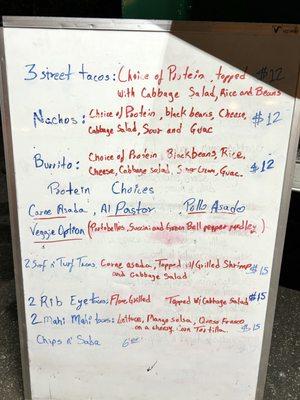 3 street tacos: Choice of Protein, topped $12
with Cabbage Salad, Rice and Beans
Nachos: Choice of Protein, black beans, Cheese, $12
Cabbage Salad, Sour and Guac
Burrito: Choice of Protein Black beans, Rice, $12
Cheese, Cabbage salad, Sour Cream, Guac.
Protein Choices
Carne Asada, Al Pastor, Pollo Asado
Veggie Option (Portobellos, Succini and Green Bell pepper medley)
2 Surf n' Turf Tacos: Carne asada, Topped w/ Grilled Shrimp $15
and Cabbage Salad
2 Rib Eye tacos: Flame Grilled Topped W/ Cabbage Salad $15
2 Mahi Mahi tacos: Lettuce, Mango salsa, Queso Fresco
on a cheesy Corn Tortilla. $15
Chips n' Salsa